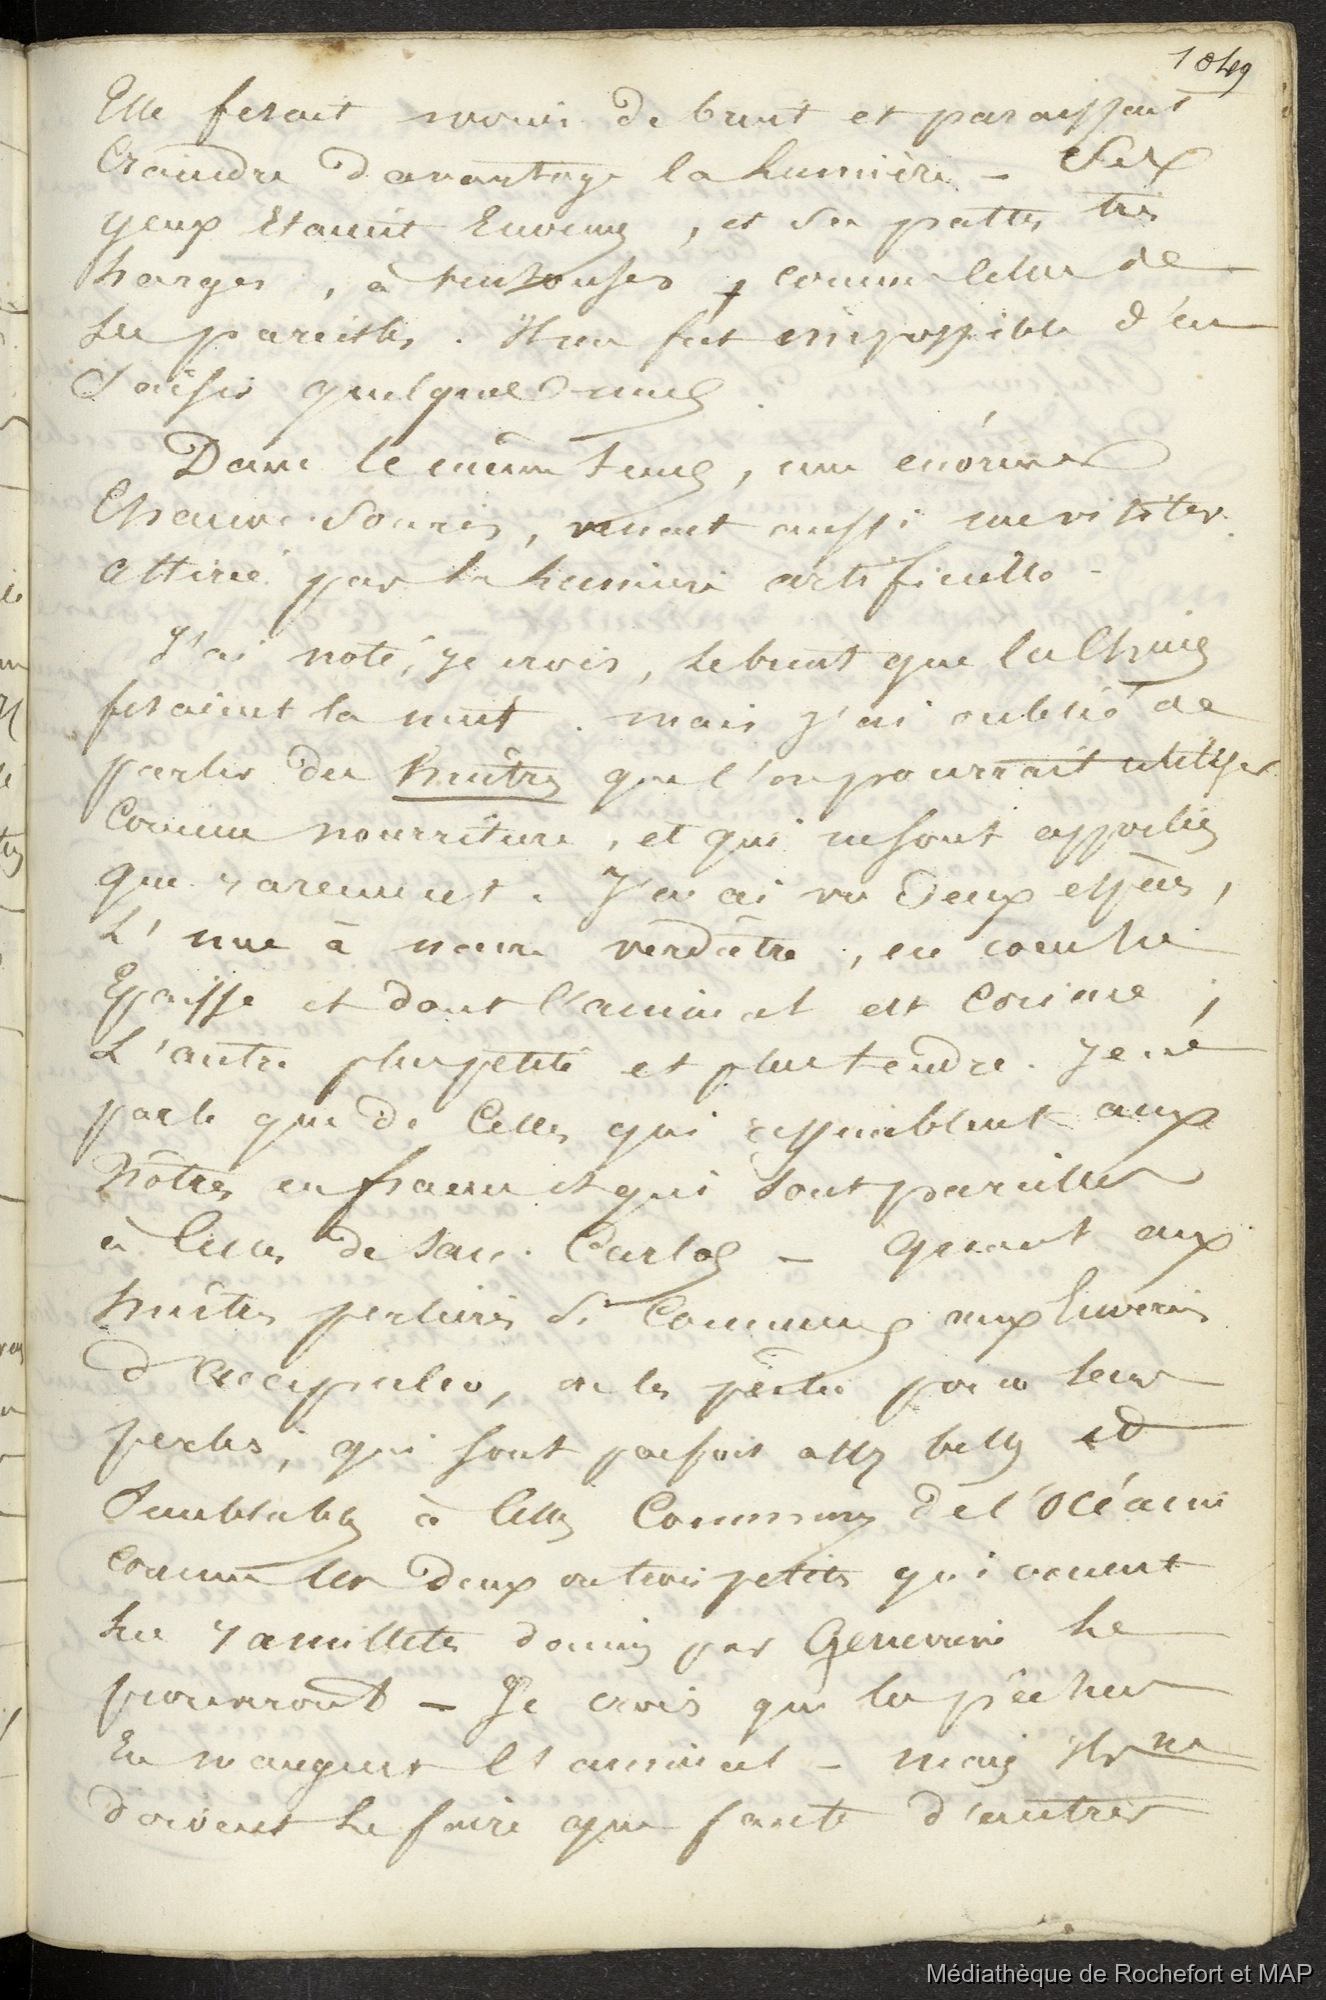 1049
Elle fesait moins de bruit et paraissait
Craindre davantage la lumière - Ses
yeux Etaient Enormes, et ses pattes très
larges, à ventouses, comme celles de
ses pareilles. Il me fut impossible d'en
saisir quelques-unes.
Dans le même tems, une énorme
Chauve-souris, venait aussi me visiter
attirée par la lumière artificielle -
J'ai noté, je crois, le bruit que les Chiens
fesaient la nuit. mais j'ai oublié de
parler des huîtres que l'on pourrait utiliser
Comme nourriture, et qui ne sont
que rarement. J'en ai vu Deux espèces,
L'une à nacre verdâtre, en couche
Epaisse et dont l'animal est Coriace ;
L'autre plus petite et plus tendre. Je ne
parle que de Celles qui ressemblent aux
Nôtres en france et qui sont pareilles
à Celles de San. Carlos - Quant aux
huîtres perlières si Communes aux Environs
d'Accapulco, on les pêche pour leurs
perles, qui sont parfois assez belles et
Semblables à Celles Communes de l'Océanie
comme les deux ou trois petites qui ornent
les ramillettes donnés par Genevieve le
prouveront - Je crois que les pêcheurs
En mangent l'animal - mais ils ne
doivent le faire que faute d'autres
Médiathèque de Rochefort et MAP